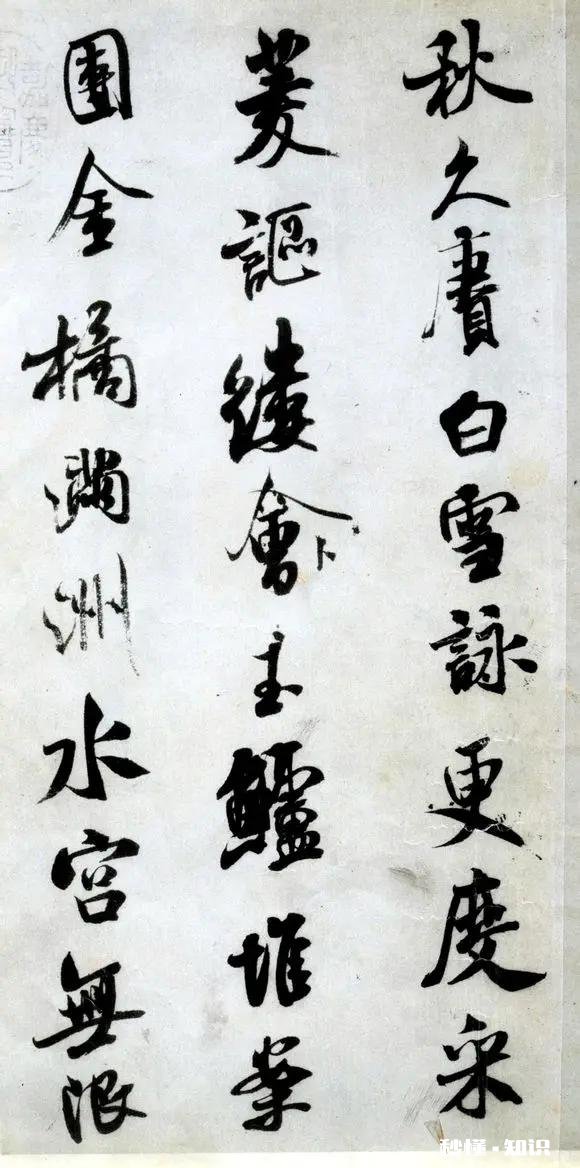 秋久賡白雪詠更度采
菱謳縷會玉鱸堆案
團金橘滿洲水宮無限
秒懂·知识